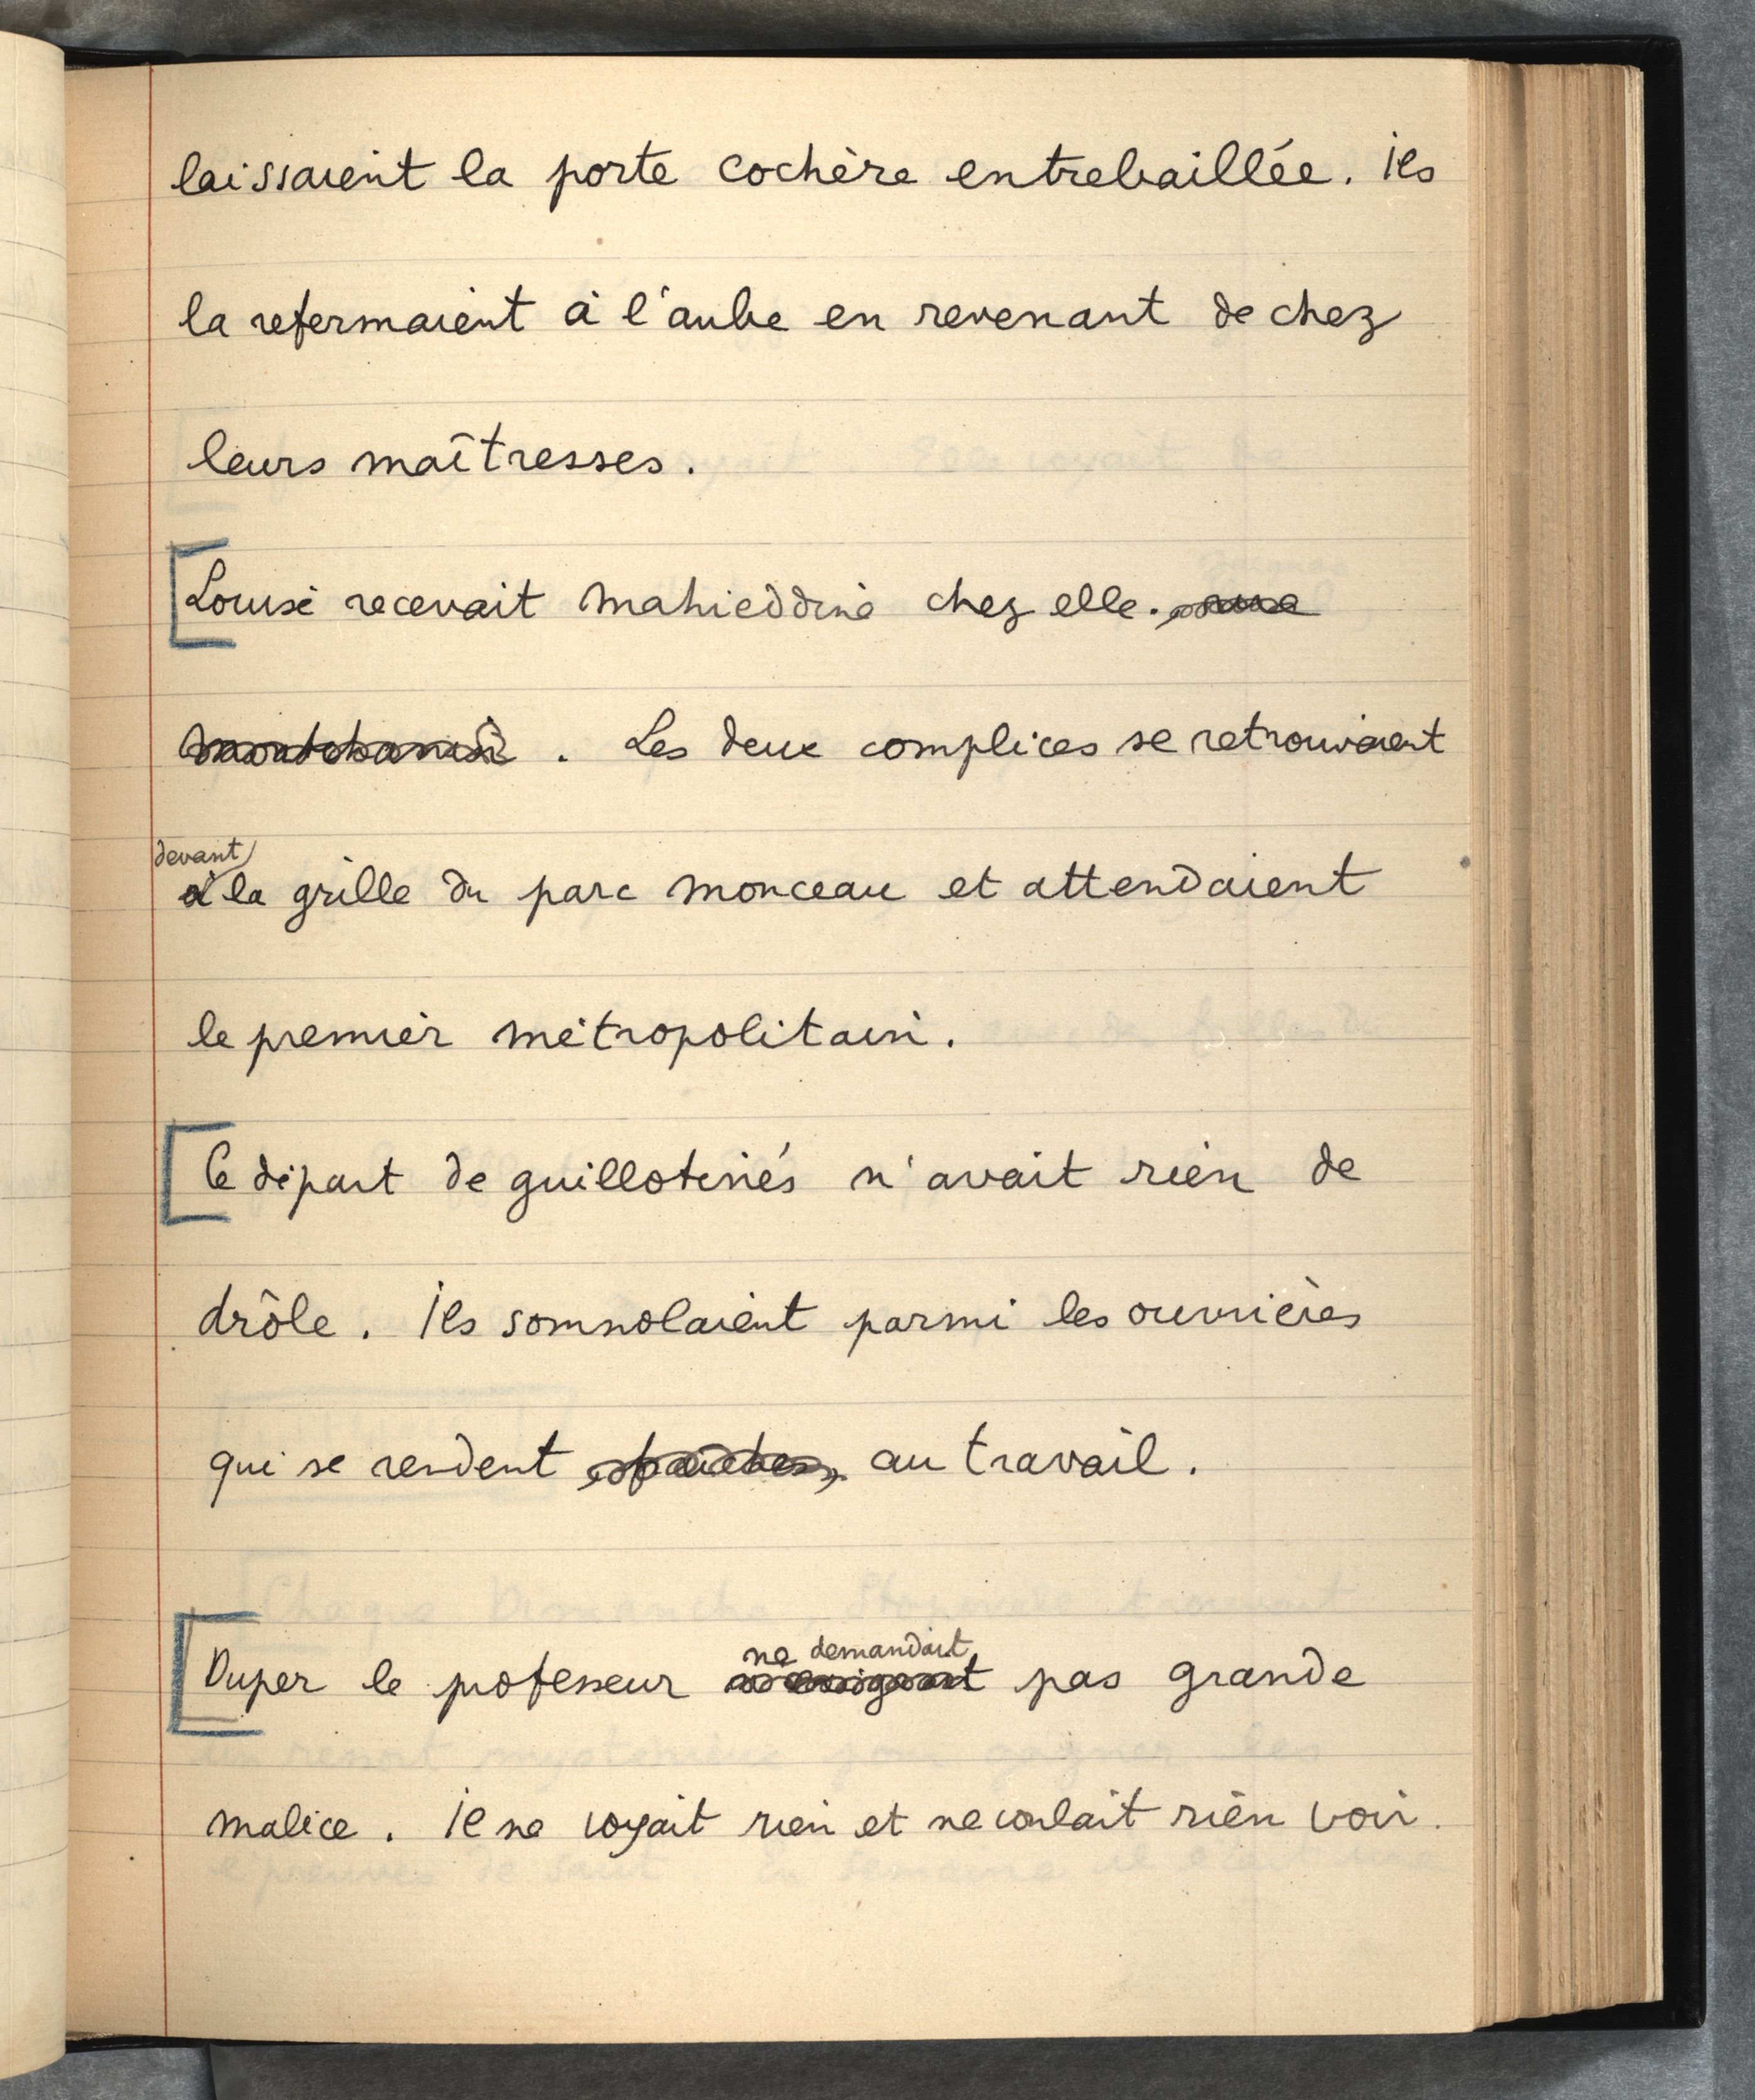 laissaient la porte cochère entrebaillée. ils
la refermaient à l'aube en revenant de chez
leurs maîtresses.
Louise recevait Mahieddine chez elle.
. Les deux complices se retrouvaient
devant
à la grille du parc Monceau et attendaient
le premier métropolitain.
Ce départ de guillotinés n'avait rien de
drôle. ils somnolaient parmi les ouvrières
qui se rendent au travail.
ne demandait
Duper le professeur pas grande
malice. il ne voyait rien et ne voulait rien voir.